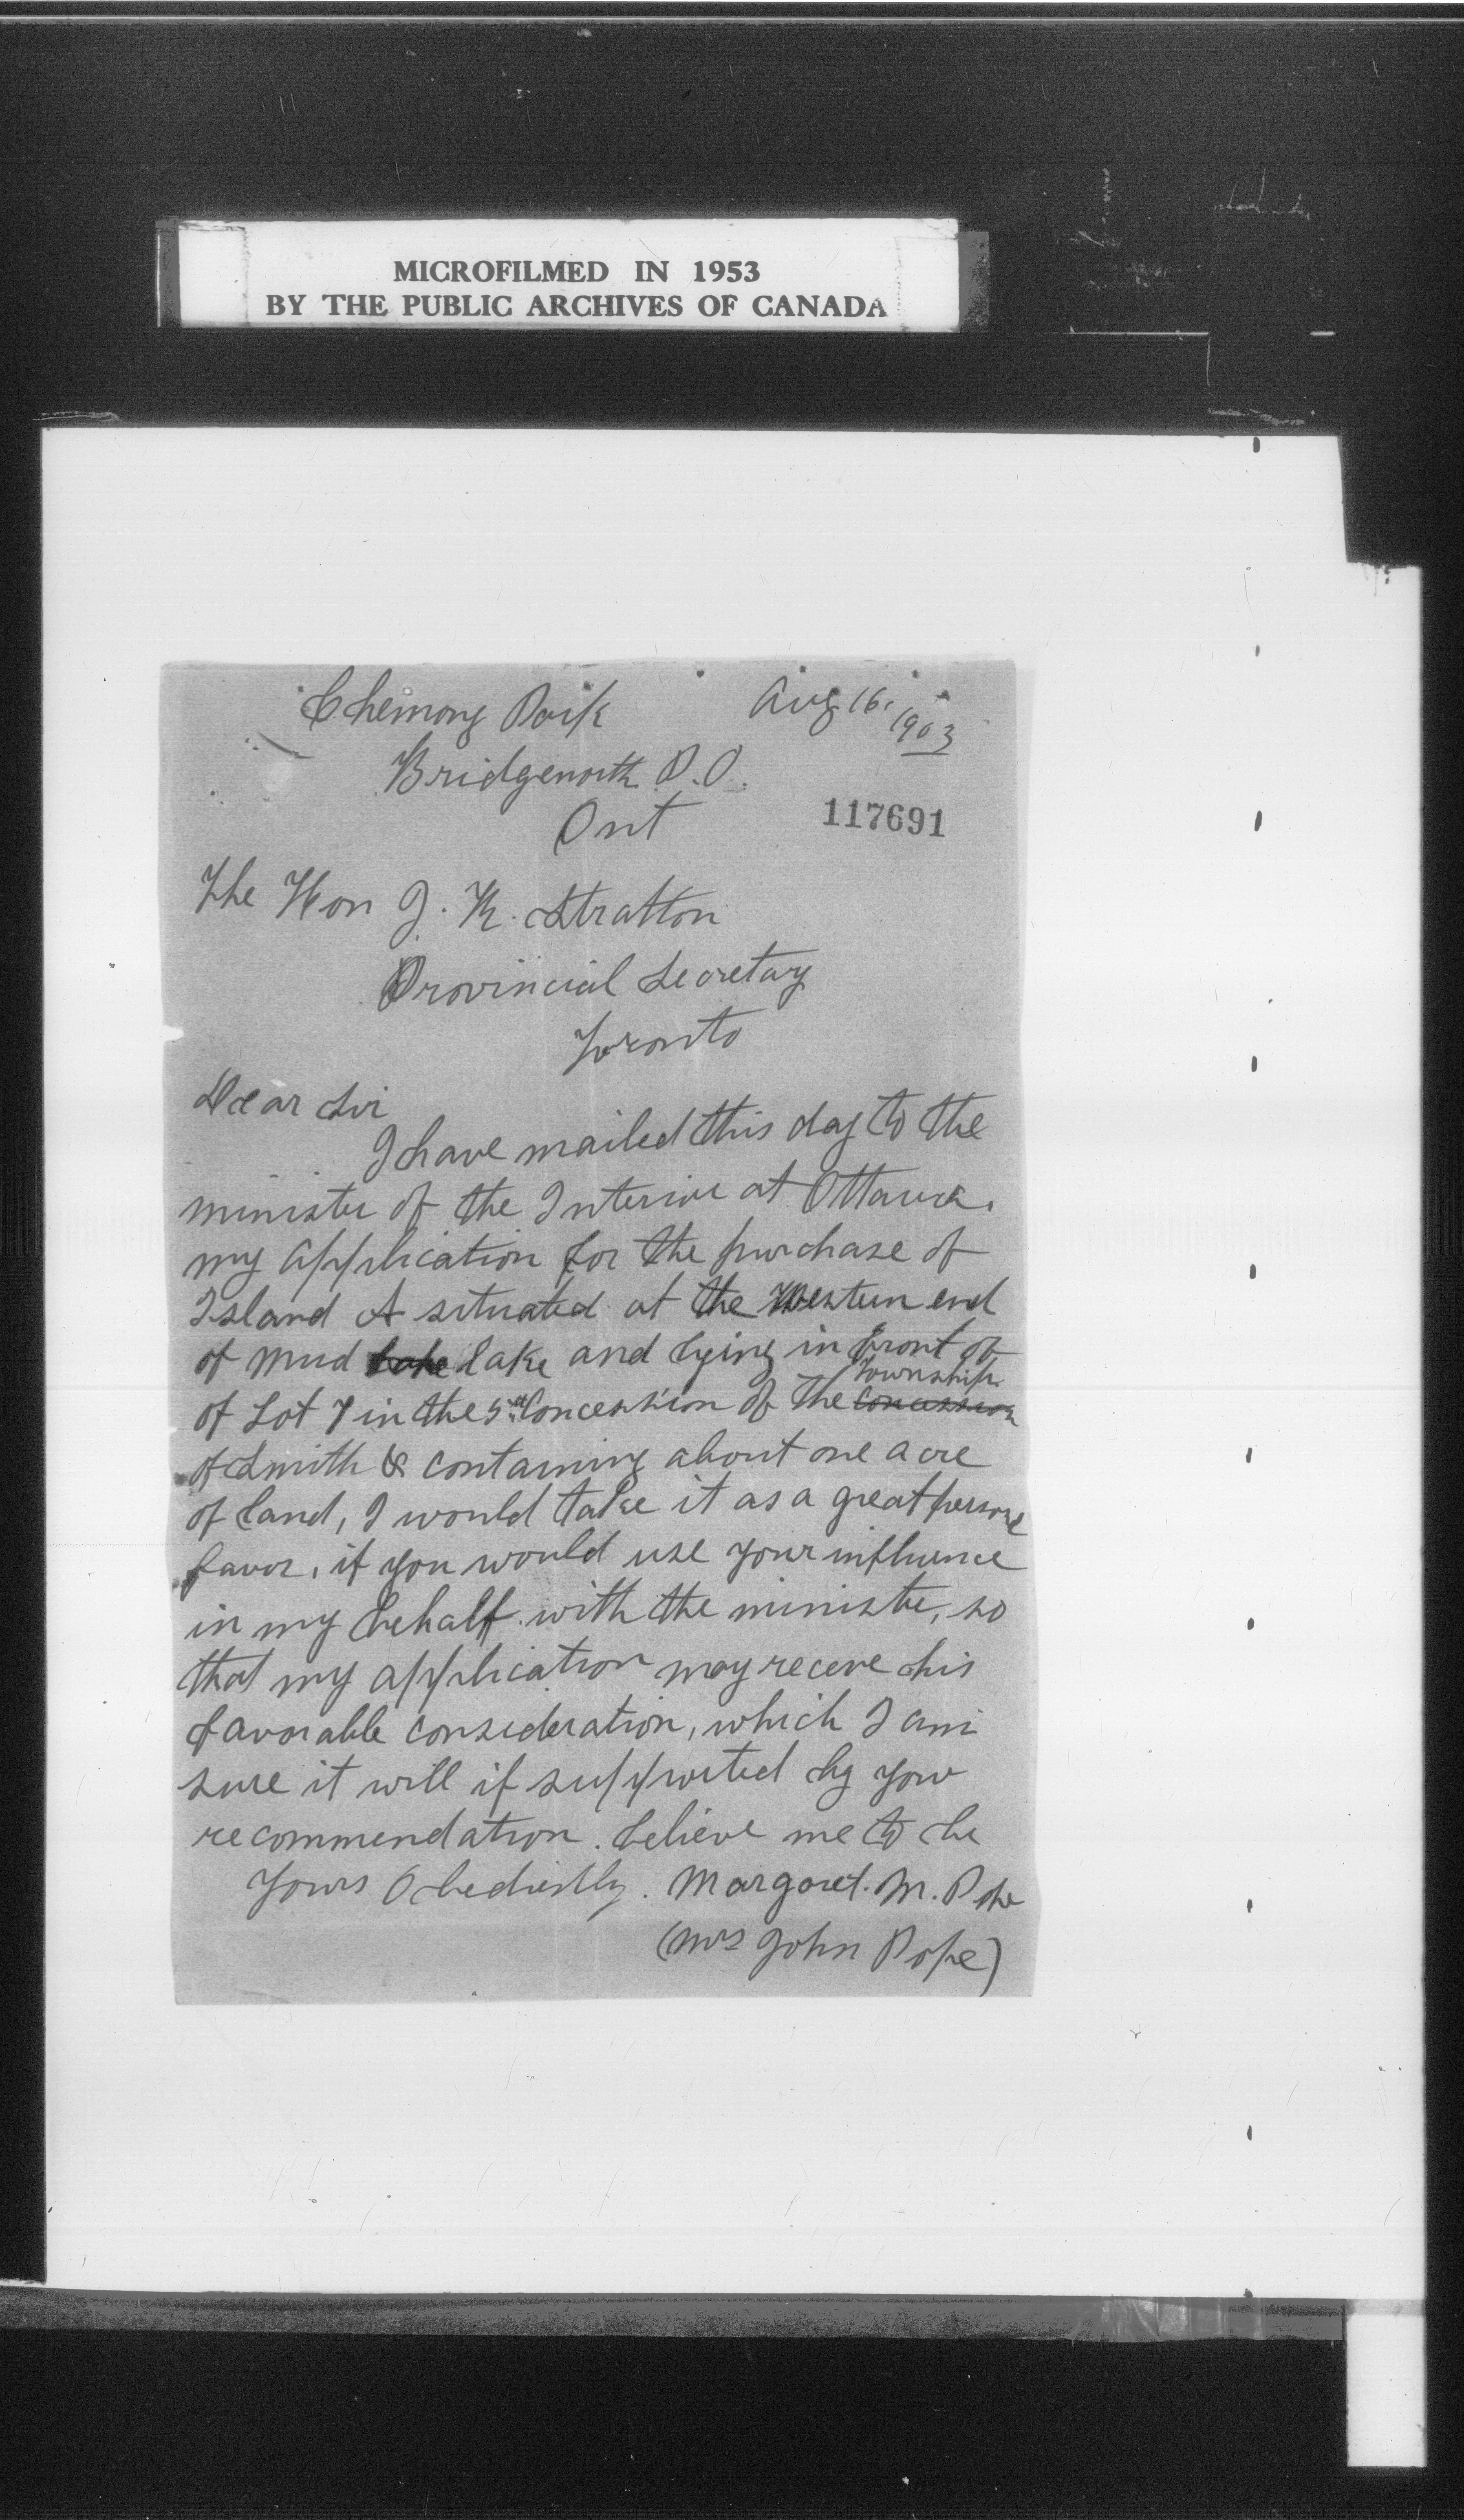 MICROFILMED IN 1953
BY THE PUBLIC ARCHIVES OF CANADA
Chemong Park Aug 16. 1903
Bridgenorth P.O.
Ont 117691
The Hon J. R. Stratton
Provincial Secretary
Toronto
Dear Sir
I have mailed this day to the
minister of the Interior at Ottawa.
my application for the purchase of
Island A situated at the Western end
of Mud lake lake and lying in front of
township
of Lot 7 in the 5th Concession of the Concession
of Smith & containing about one acre
of land, I would take it as a great personal
favor, if you would use your influence
in my behalf with the minister, so
that my application may receive his
favorable consideration, which I am
sure it will if supported by your
recommendation. believe me to be
Yours Obediently. Margaret. M. Pope
(Mrs John Pope)